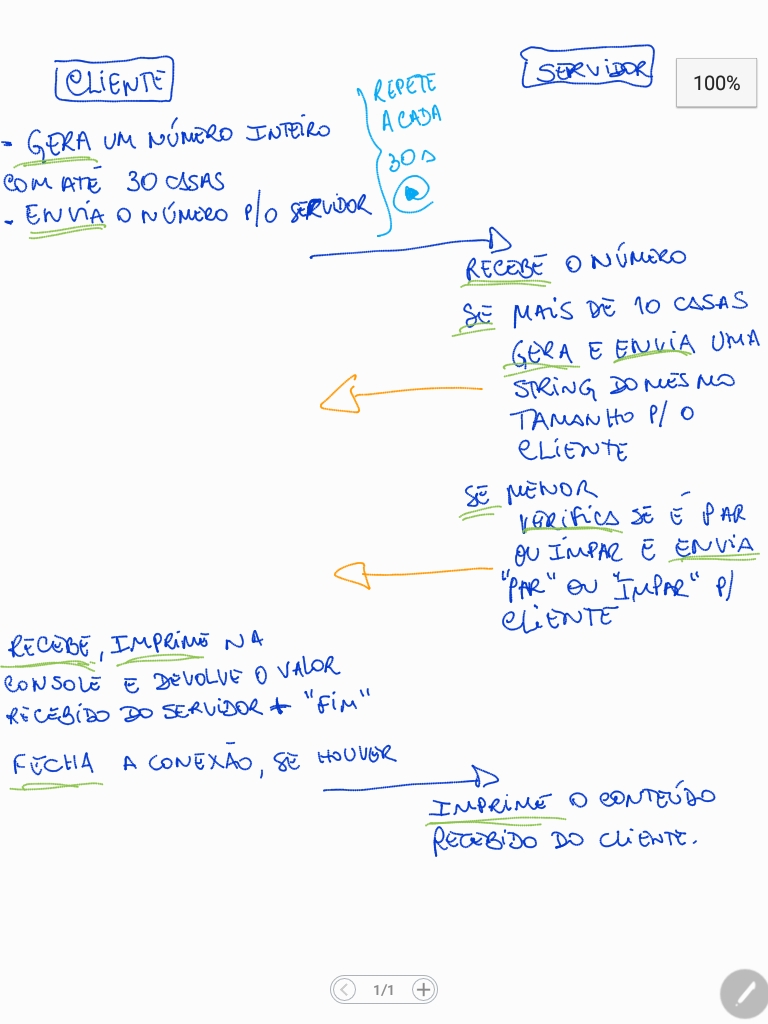 CLIENTE
- GERA UM NÚMERO INTEIRO
COM ATÉ 30 CASAS
- ENVIA O NÚMERO P/O SERVIDOR
REPETE
A CADA
30 s
SERVIDOR
100%
RECEBE O NÚMERO
SE MAIS DE 10 CASAS
GERA E ENVIA UMA
STRING DO MESMO
TAMANHO P/ O
CLIENTE
SE MENOR
VERIFICA SE É PAR
OU ÍMPAR E ENVIA
"PAR" OU "ÍMPAR" P/
CLIENTE
RECEBE, IMPRIME NA
CONSOLE E DEVOLVE O VALOR
RECEBIDO DO SERVIDOR + "FIM"
FECHA A CONEXÃO, SE HOUVER
IMPRIME O CONTEÚDO
RECEBIDO DO CLIENTE.
1/1